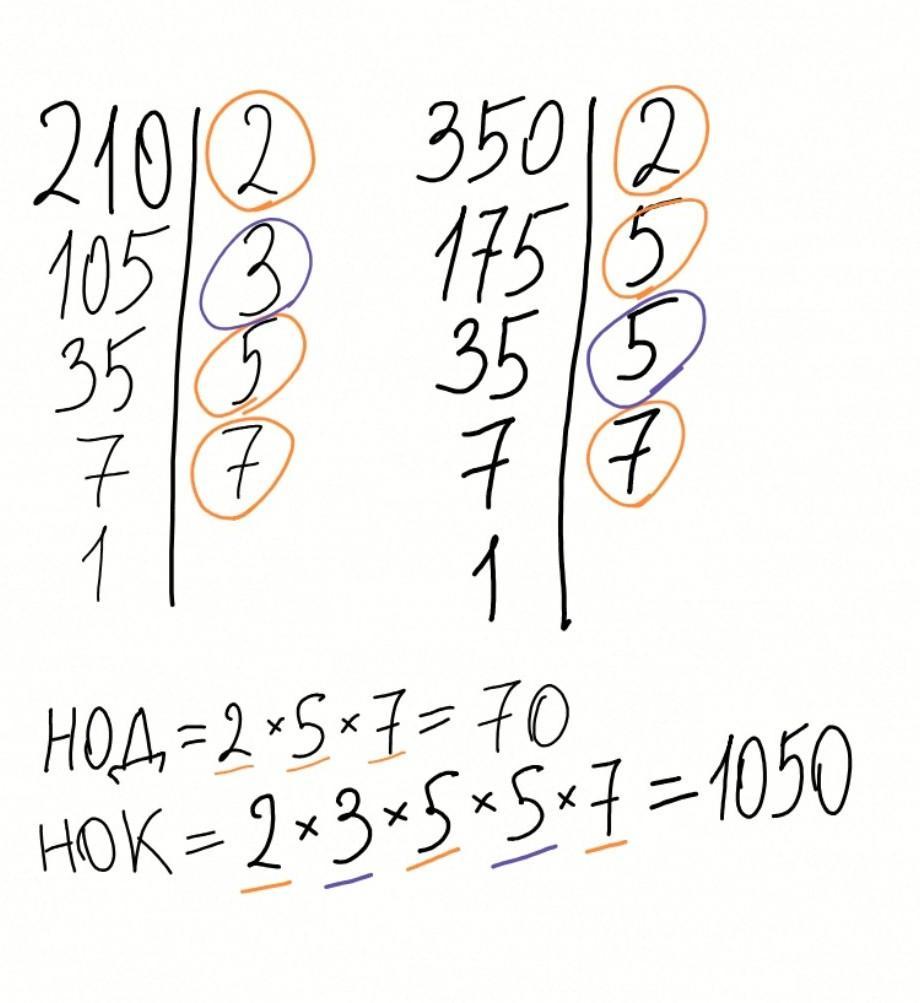 210 | 2
105 | 3
35 | 5
7 | 7
1 |
350 | 2
175 | 5
35 | 5
7 | 7
1 |
НОД = 2 × 5 × 7 = 70
НОК = 2 × 3 × 5 × 5 × 7 = 1050